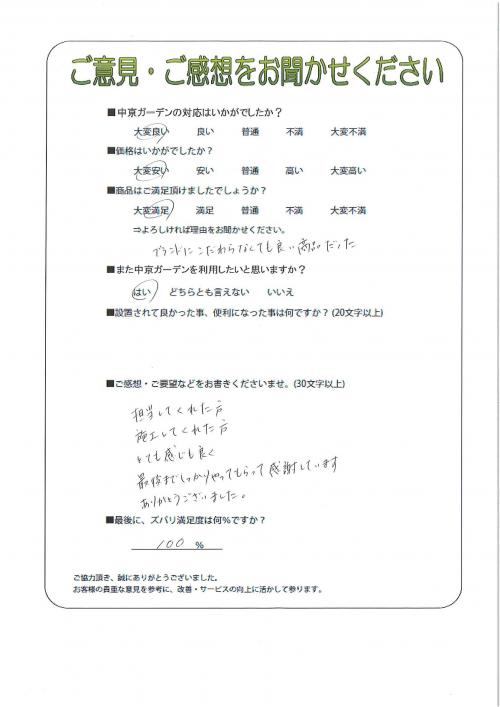 ご意見・ご感想をお聞かせください
■中京ガーデンの対応はいかがでしたか？
大変良い 良い 普通 不満 大変不満
■価格はいかがでしたか？
大変安い 安い 普通 高い 大変高い
■商品はご満足頂けましたでしょうか？
大変満足 満足 普通 不満 大変不満
⇒よろしければ理由をお聞かせください。
ブランドにこだわらなくても良い商品だった
■また中京ガーデンを利用したいと思いますか？
はい どちらとも言えない いいえ
■設置されて良かった事、便利になった事は何ですか？(20文字以上)
■ご感想・ご要望などをお書きくださいませ。(30文字以上)
担当してくれた方
施工してくれた方
とても感じも良く
最後までしっかりやってもらって感謝しています
ありがとうございました。
■最後に、ズバリ満足度は何%ですか？
100 %
ご協力頂き、誠にありがとうございました。
お客様の貴重な意見を参考に、改善・サービスの向上に活かして参ります。